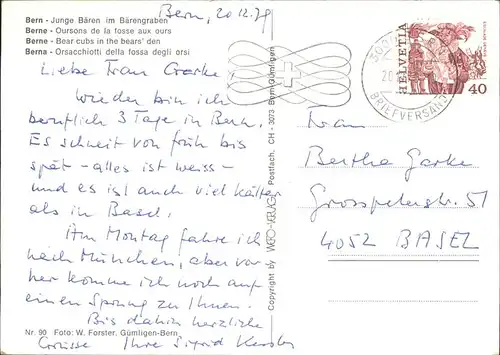 Bern, 20.12.79
Bern - Junge Bären im Bärengraben
Berne - Oursons de la fosse aux ours
Berne - Bear cubs in the bears' den
Berna - Orsacchiotti della fossa degli orsi
Liebe Frau Garke,
Wieder bin ich
beruflich 3 Tage in Bern.
Es schneit von früh bis
spät - alles ist weiss -
und es ist auch viel kälter
als in Basel.
Am Montag fahre ich
nach München, aber vor-
her komme ich noch auf
einen Sprung zu Ihnen.
Bis dahin herzliche
Grüsse Ihre Sigrid
Nr. 90 Foto: W. Forster, Gümligen-Bern
Copyright by Postfach, CH - 3073 Bern-Gümligen
HELVETIA
40
BRIEFVERSAND
Frau
Bertha Garke
Grosspeterstr. 51
4052 BASEL